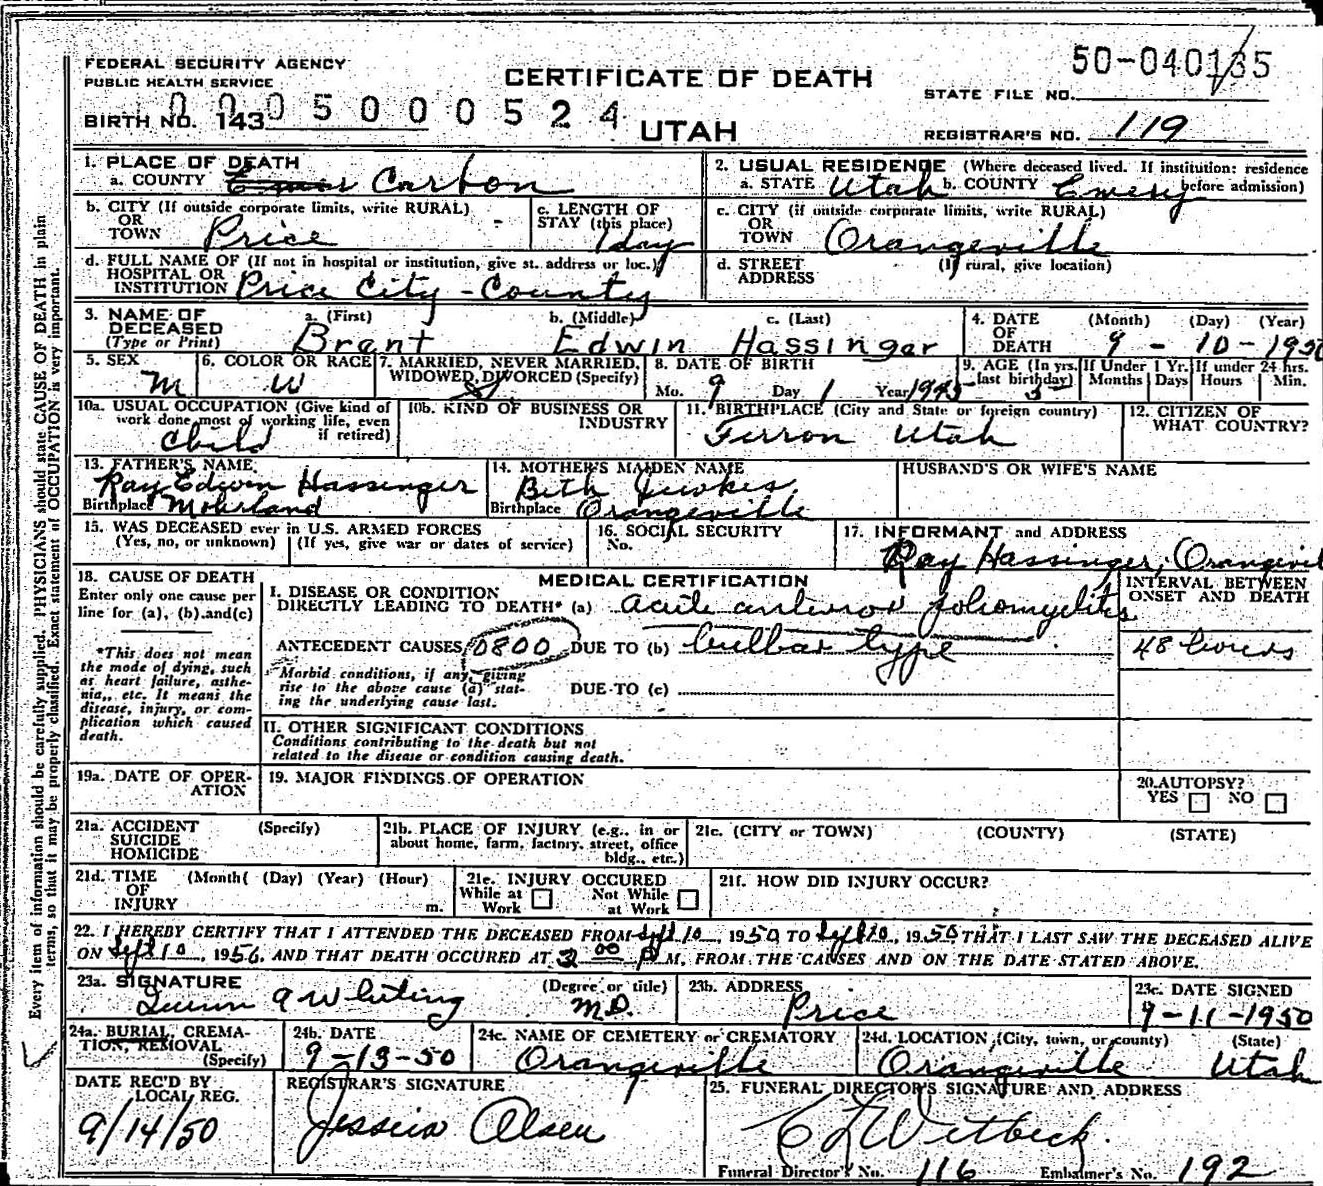 FEDERAL SECURITY AGENCY
PUBLIC HEALTH SERVICE
CERTIFICATE OF DEATH
50-040135
STATE FILE NO.
BIRTH NO. 143 0005000524
UTAH
REGISTRAR'S NO. 119
1. PLACE OF DEATH
a. COUNTY Carbon
2. USUAL RESIDENCE (Where deceased lived. If institution: residence before admission)
a. STATE Utah b. COUNTY Emery
b. CITY (If outside corporate limits, write RURAL)
OR
TOWN Price
c. LENGTH OF
STAY (this place)
1 day
c. CITY (if outside corporate limits, write RURAL)
OR
TOWN Orangeville
d. FULL NAME OF (If not in hospital or institution, give st. address or loc.)
HOSPITAL OR
INSTITUTION Price City-County
d. STREET (If rural, give location)
ADDRESS
3. NAME OF
DECEASED
(Type or Print)
a. (First) b. (Middle) c. (Last)
Brent Edwin Hassinger
4. DATE (Month) (Day) (Year)
OF
DEATH 9-10-1950
5. SEX
M
6. COLOR OR RACE
W
7. MARRIED, NEVER MARRIED,
WIDOWED, DIVORCED (Specify)
S
8. DATE OF BIRTH
Mo. 9 Day 1 Year 1945
9. AGE (In yrs. last birthday) 5
If Under 1 Yr. Months Days
If under 24 hrs. Hours Min.
10a. USUAL OCCUPATION (Give kind of
work done most of working life, even
if retired)
Child
10b. KIND OF BUSINESS OR
INDUSTRY
11. BIRTHPLACE (City and State or foreign country)
Ferron Utah
12. CITIZEN OF
WHAT COUNTRY?
13. FATHER'S NAME
Ray Edwin Hassinger
Birthplace Mohrland
14. MOTHER'S MAIDEN NAME
Beth Jewkes
Birthplace Orangeville
HUSBAND'S OR WIFE'S NAME
15. WAS DECEASED ever in U.S. ARMED FORCES
(Yes, no, or unknown) (If yes, give war or dates of service)
16. SOCIAL SECURITY
No.
17. INFORMANT and ADDRESS
Ray Hassinger, Orangevil
18. CAUSE OF DEATH
Enter only one cause per
line for (a), (b) and (c)
*This does not mean
the mode of dying, such
as heart failure, asthe-
nia, etc. It means the
disease, injury, or com-
plication which caused
death.
MEDICAL CERTIFICATION
I. DISEASE OR CONDITION
DIRECTLY LEADING TO DEATH* (a) acute anterior poliomyelitis
INTERVAL BETWEEN
ONSET AND DEATH
ANTECEDENT CAUSES 0800 DUE TO (b) bulbar type
48 hours
Morbid conditions, if any, giving
rise to the above cause (a) stat-
ing the underlying cause last.
DUE TO (c)
II. OTHER SIGNIFICANT CONDITIONS
Conditions contributing to the death but not
related to the disease or condition causing death.
19a. DATE OF OPER-
ATION
19. MAJOR FINDINGS OF OPERATION
20. AUTOPSY?
YES NO
21a. ACCIDENT (Specify)
SUICIDE
HOMICIDE
21b. PLACE OF INJURY (e.g., in or
about home, farm, factory, street, office
bldg., etc.)
21c. (CITY or TOWN) (COUNTY) (STATE)
21d. TIME (Month( (Day) (Year) (Hour)
OF
INJURY m.
21e. INJURY OCCURED
While at Work Not While at Work
21f. HOW DID INJURY OCCUR?
22. I HEREBY CERTIFY THAT I ATTENDED THE DECEASED FROM Sept 10, 1950 TO Sept 10, 1950 THAT I LAST SAW THE DECEASED ALIVE
ON Sept 10, 1950, AND THAT DEATH OCCURED AT 2 00 P M, FROM THE CAUSES AND ON THE DATE STATED ABOVE.
23a. SIGNATURE (Degree or title)
Quinn A Whiting M.D.
23b. ADDRESS
Price
23c. DATE SIGNED
9-11-1950
24a. BURIAL, CREMA-
TION, REMOVAL
(Specify)
24b. DATE
9-13-50
24c. NAME OF CEMETERY or CREMATORY
Orangeville
24d. LOCATION (City, town, or county) (State)
Orangeville Utah
DATE REC'D BY
LOCAL REG.
9/14/50
REGISTRAR'S SIGNATURE
Jessica Olsen
25. FUNERAL DIRECTOR'S SIGNATURE AND ADDRESS
C L Wetbeck
Funeral Director's No. 116 Embalmer's No. 192
Every item of information should be carefully supplied. PHYSICIANS should state CAUSE OF DEATH in plain
terms, so that it may be properly classified. Exact statement of OCCUPATION is very important.